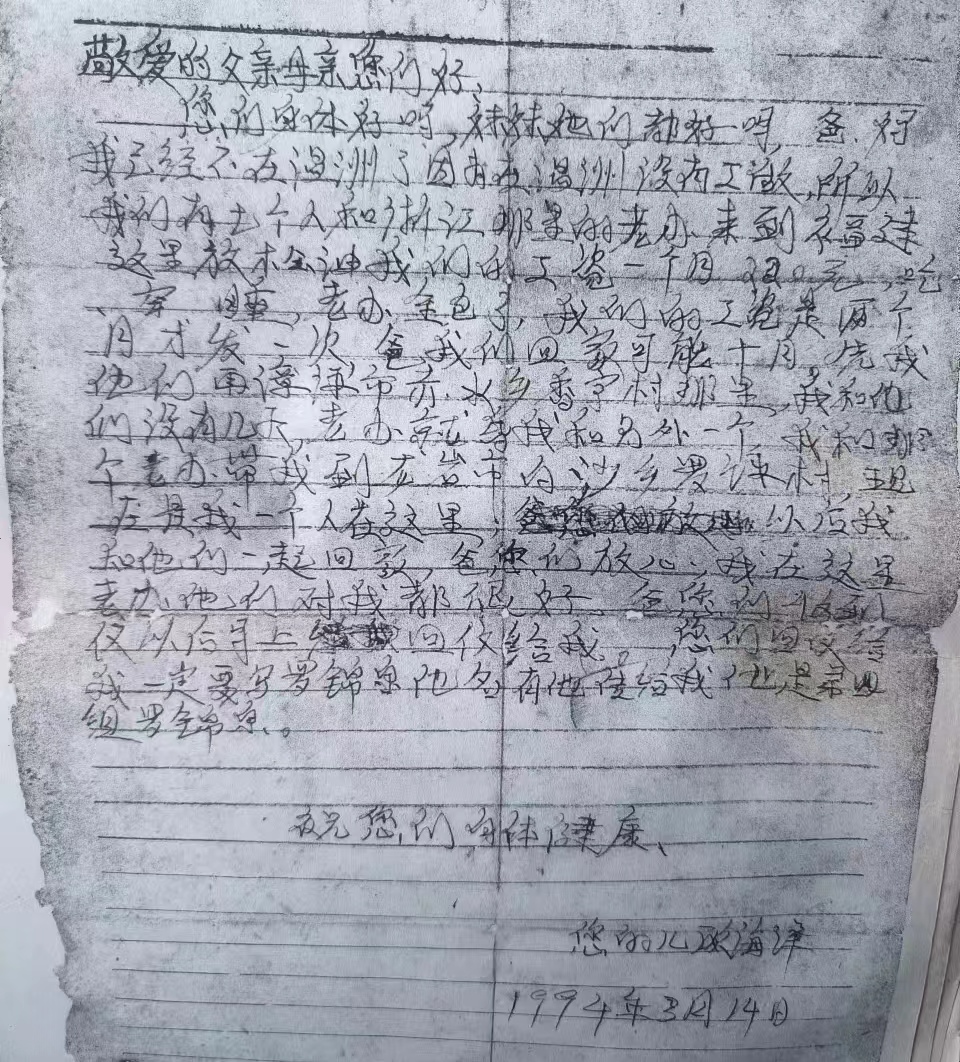 敬爱的父亲母亲您们好、
您们身体好吗,妹妹她们都好吗,爸妈
我已经不在温洲了因为在温洲没有工做,所以
我们有七个人和浙江那里的老办来到福建
这里放松油我们的工资一个月元,吃
、穿、睡,老办全包了,我们的工资是两个
月才发一次爸,我们回家可能十月,先我
他们再漳市水乡香字村那里,我和他
们没有几天,老办就带我和另外一个,我和那
个老办带我到市内沙乡罗村,现
在是我一个人在这里、以后我
和他们一起回家,爸您们放心、我在这里
老办他们对我都很好、爸您们收到
仪以后马上回仪给我。您们回仪给
我一定要写罗锦京他名有他传给我他是第四
组罗锦京、。
祝您们身体健康、
您的儿欧海
1994年3月14日